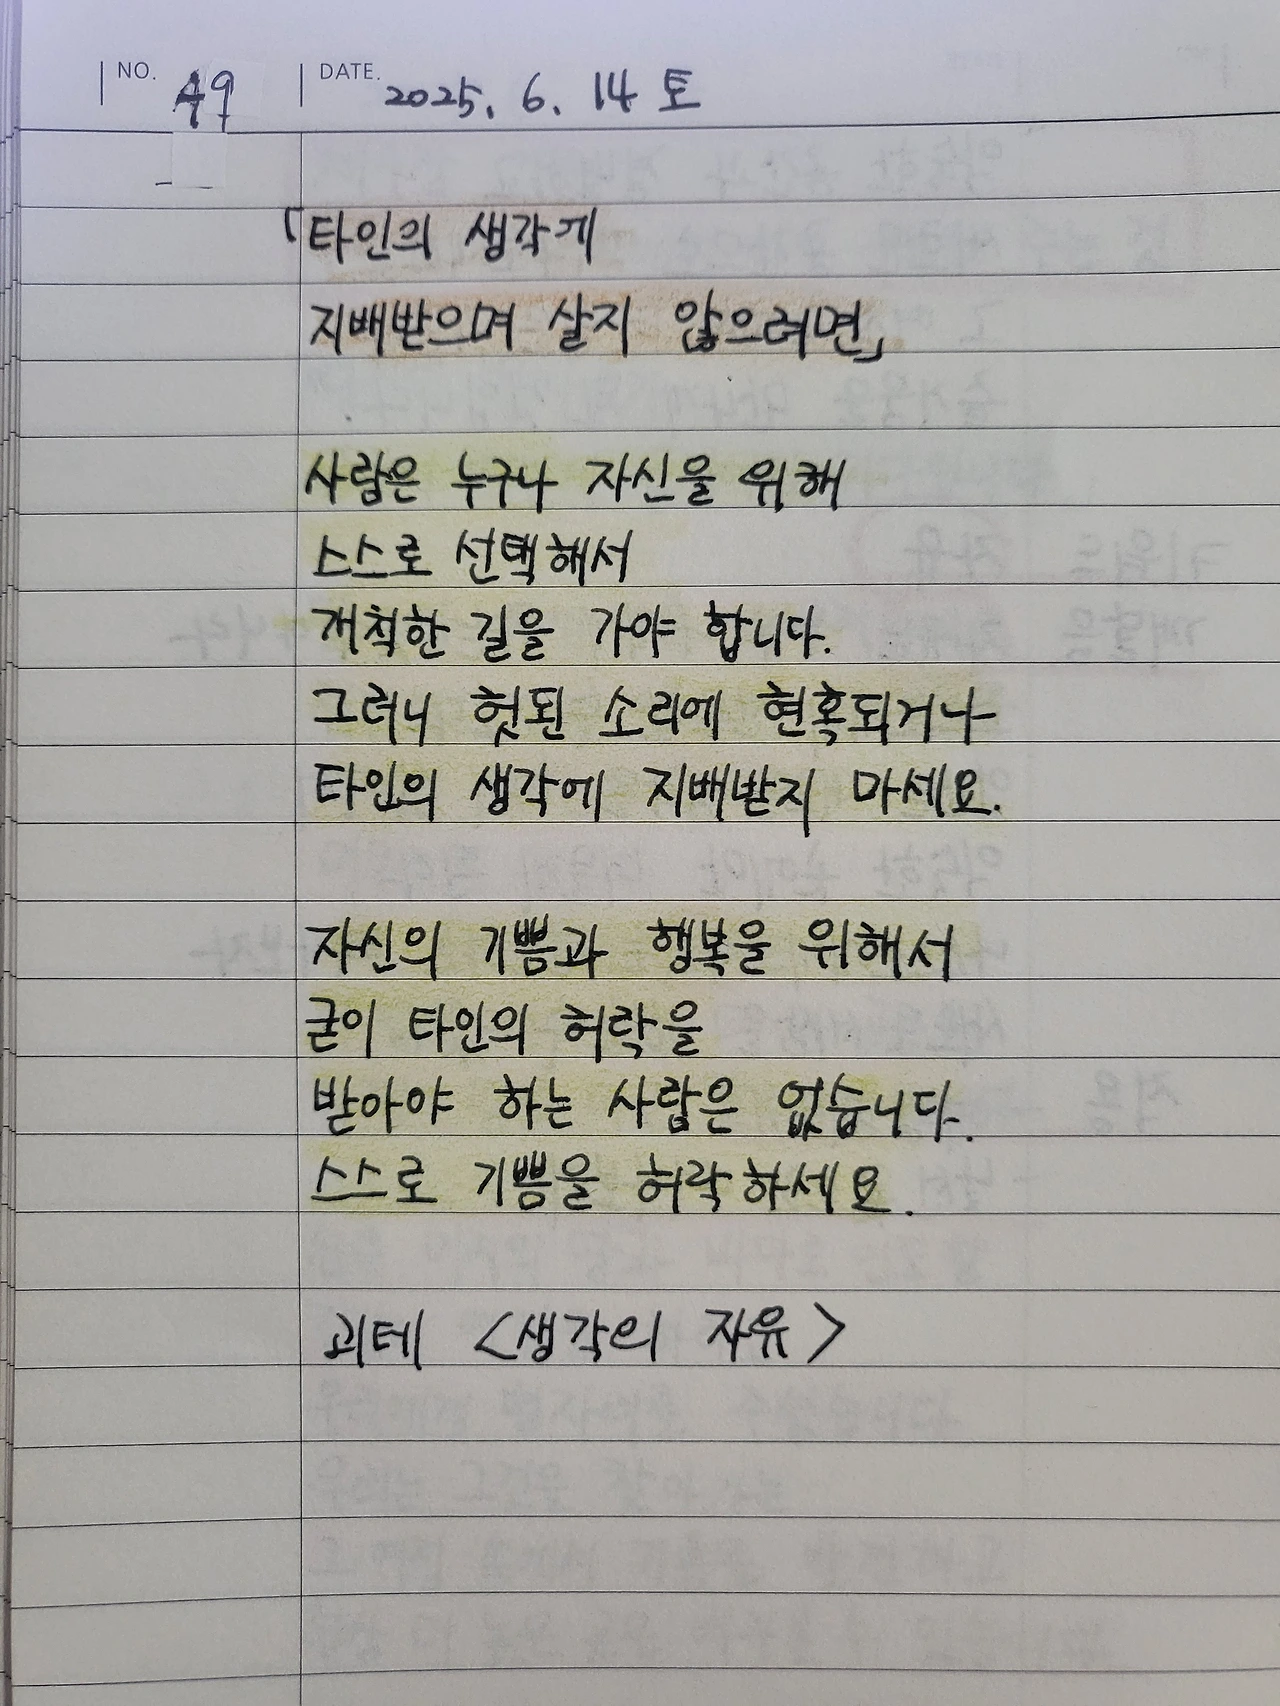 NO. 49 DATE. 2025. 6. 14 토
「타인의 생각게
지배받으며 살지 않으려면」
사람은 누구나 자신을 위해
스스로 선택해서
개척한 길을 가야 합니다.
그러니 헛된 소리에 현혹되거나
타인의 생각에 지배받지 마세요.
자신의 기쁨과 행복을 위해서
굳이 타인의 허락을
받아야 하는 사람은 없습니다.
스스로 기쁨을 허락하세요.
괴테 <생각의 자유>